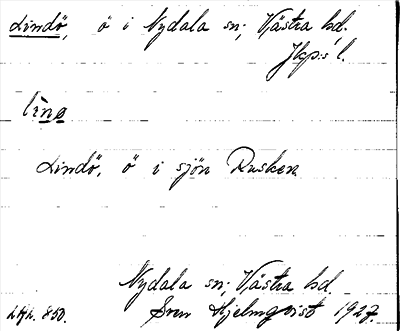 Lindö, ö i Nydala sn; Västra hd.
Jkp:s l.
lìnø
Lindö, ö i sjön Rusken
Nydala sn; Västra hd
Lty. 850. Sven Hjelmqvist 1927.